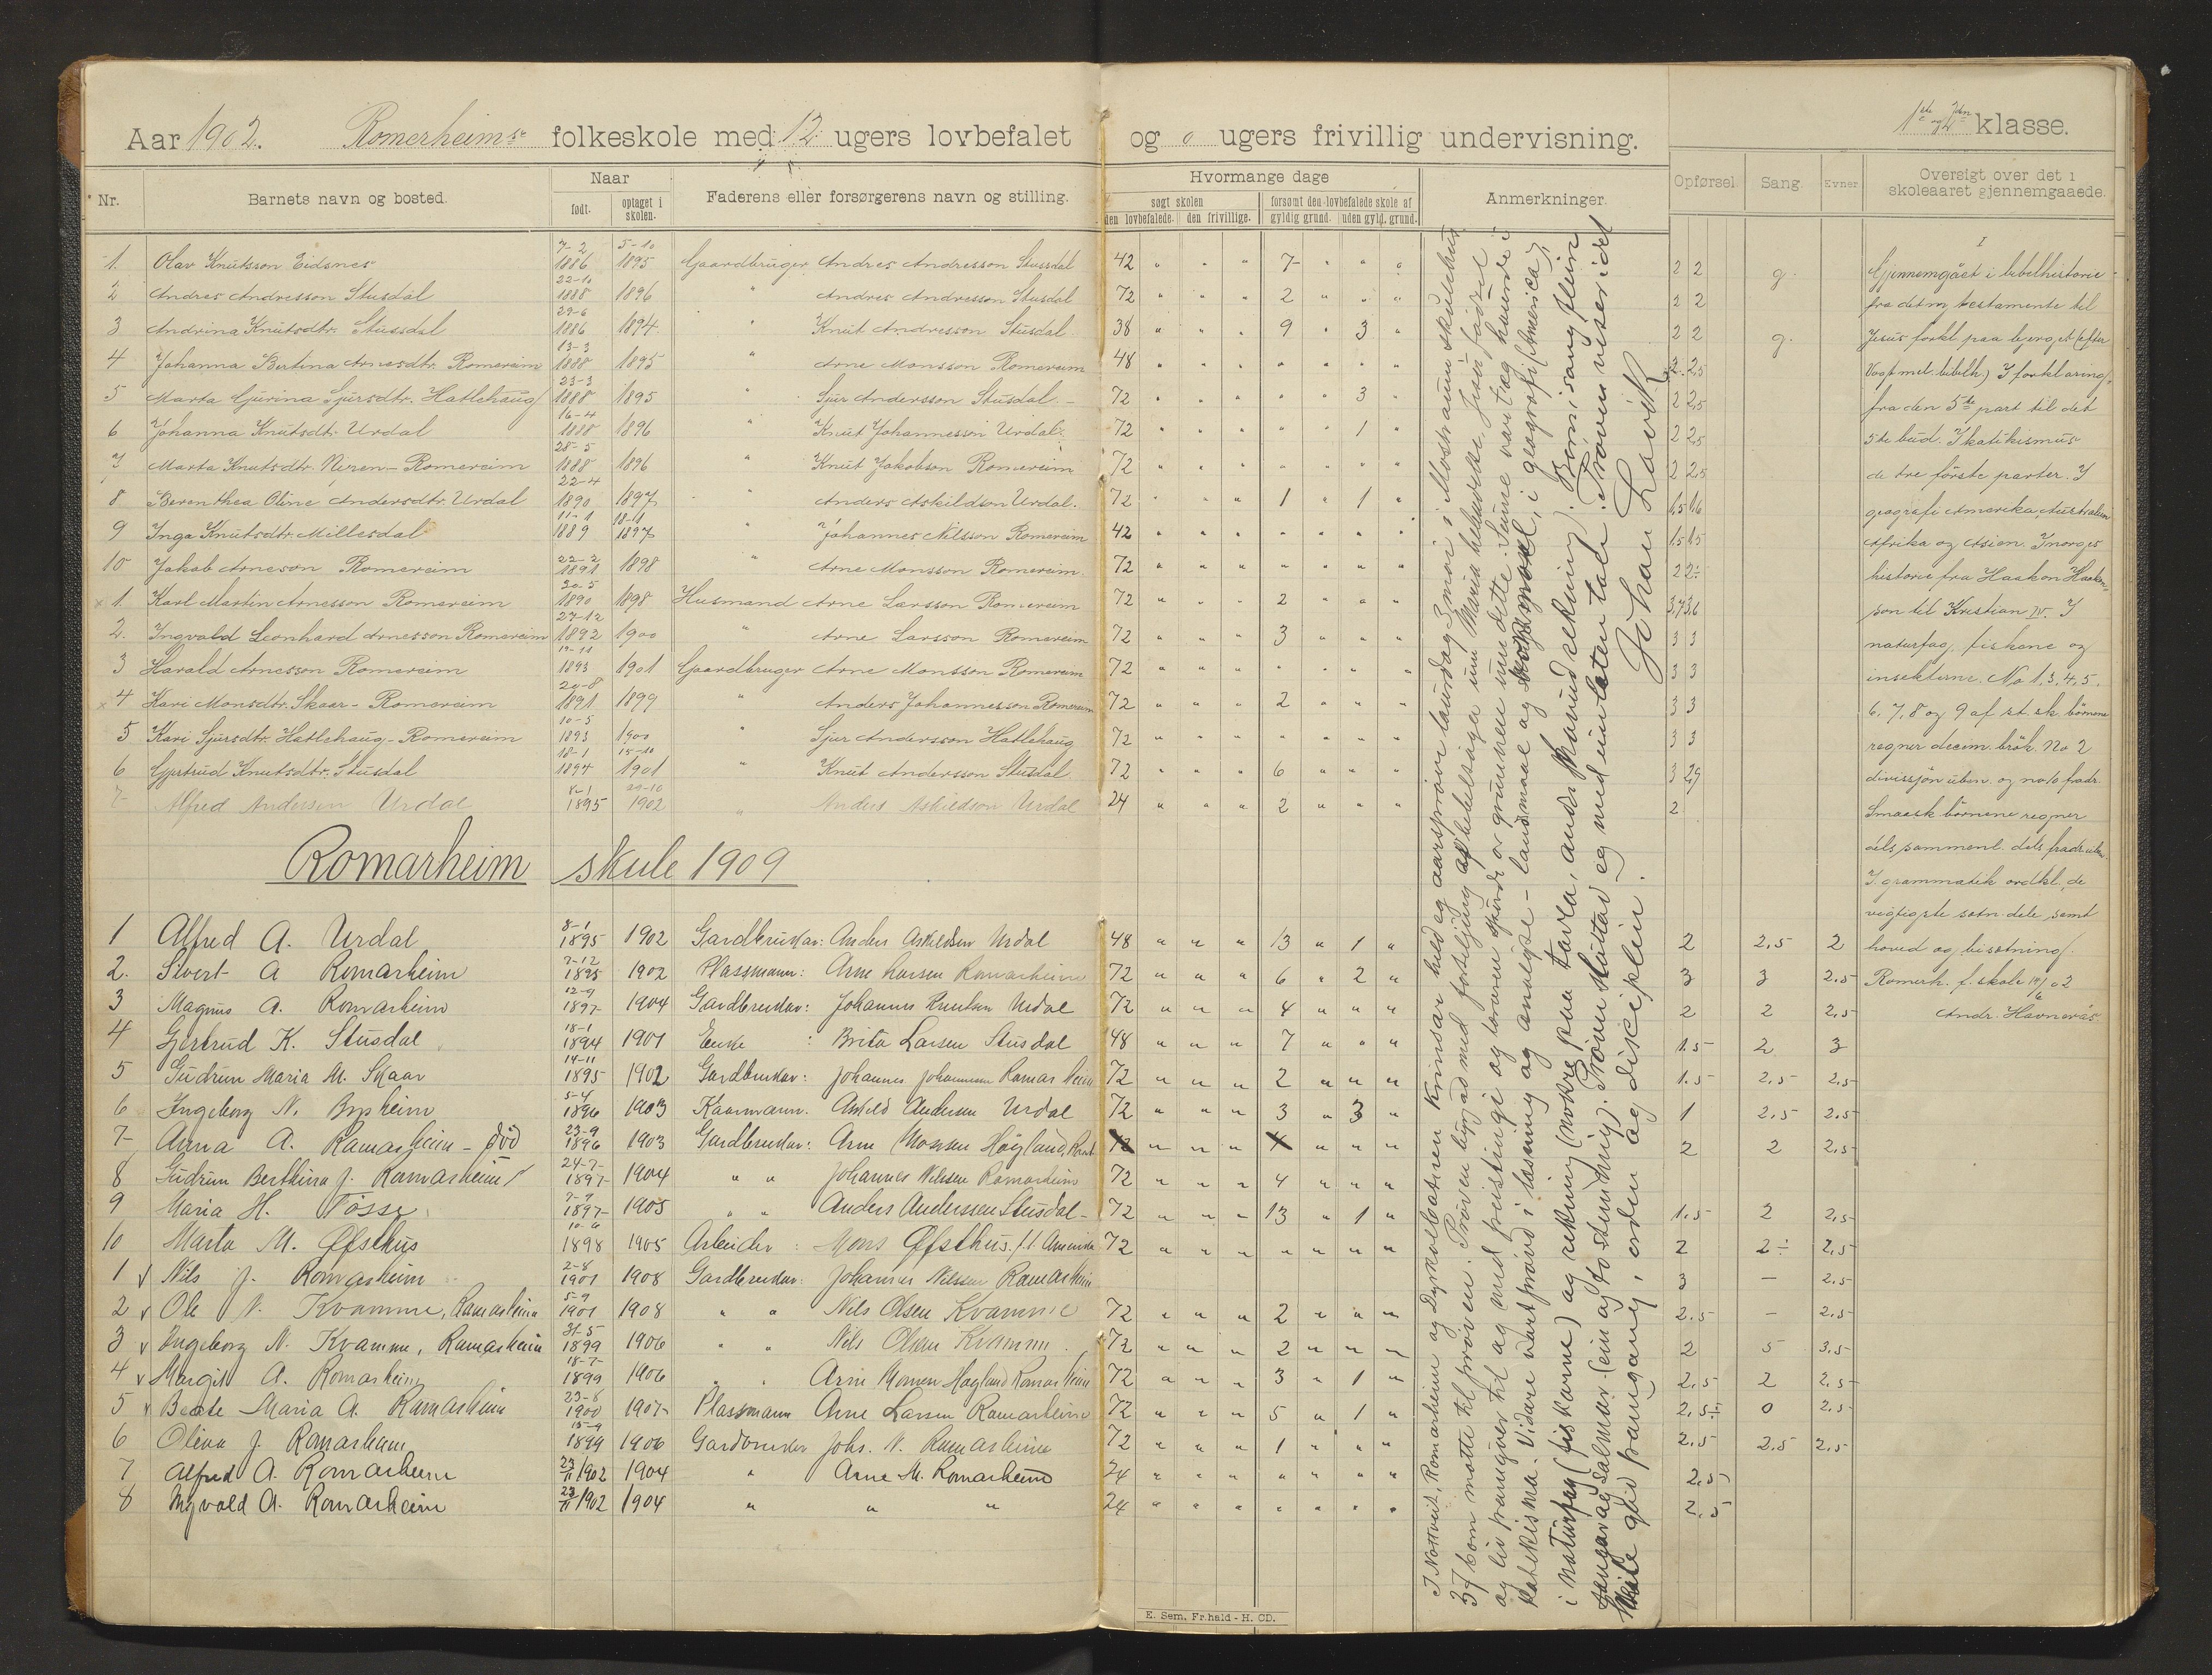 Aar 1902. Romerheims folkeskole med 12 ugers lovbefalet og 0 ugers frivillig undervisning. 1ste og 2den klasse.
Nr. Barnets navn og bosted. Naar født. optaget i skolen. Faderens eller forsørgerens navn og stilling. Hvormange dage søgt skolen den lovbefalede. den frivillige. forsømt den lovbefalede skole af gyldig grund. uden gyld. grund. Anmerkninger. Opførsel. Sang. Evner. Oversigt over det i skoleaaret gjennemgaaede.
1. Olav Knutsson Eidsnes 7-2 1886 5-10 1895 Gaardbruger Andres Andresson Stussdal 42 " " " 7 " " " 2 2 g.
2 Andres Andresson Stusdal 22-10 1888 1896 " Andres Andresson Stusdal 72 " " " 2 " " " 2 2
3 Andrina Knutsdtr. Stussdal 29-6 1886 1894 " Knut Andresson Stusdal 38 " " " 9 " 3 " 2 2 g.
4 Johanna Bertina Arnesdtr. Romereim 13-3 1888 1895 " Arne Monsson Romereim 48 " " " " " " " 2.5
5 Marta Gurina Sjursdtr. Hatlehaug 23-3 1888 1895 " Sjur Andersson Stusdal 72 " " " " " 3 " 2 2,5
6 Johanna Knutsdtr. Urdal 16-4 1888 1896 " Knut Johannesson Urdal. 72 " " " " " 1 " 2 2,5
7 Marta Knutsdtr. Niren - Romereim 28-5 1888 1896 " Knut Jakobson Romereim 72 " " " " " " " 2 2,5
8 Berenthea Oline Andersdtr. Urdal 22-4 1890 1897 " Anders Askildson Urdal. 72 " " " 1 " 1 " 1,5 1,6
9 Inga Knutsdtr. Millesdal 11-1 1889 18-11 1897 " Johannes Nilsson Romereim 42 " " " " " " " 1,5 1,5
10 Jakob Arneson Romereim 22-2 1891 1898 " Arne Monsson Romereim. 72 " " " " " " " 2 2÷
1. Karl Martin Arnesson Romereim 30-5 1890 1898 Husmand Arne Larsson Romereim 72 " " " 2 " " " 3,7 3,6
2. Ingvald Leonhard Arnesson Romereim 27-12 1892 1900 " Arne Larsson Romereim 72 " " " 3 " " " 3 3
3 Harald Arnesson Romereim 19-11 1893 1901 Gaardbruger Arne Monsson Romereim 72 " " " " " " " 3 3
4 Kari Monsdtr. Skaar - Romereim 29-8 1891 1899 " Anders Johannesson Romereim 72 " " " 2 " " " 3 3
5 Kari Sjursdtr. Hatlehaug - Romereim 10-5 1893 1900 " Sjur Andersson Hatlehaug 72 " " " " " " " 3 3
6 Gjertrud Knutsdtr. Stusdal 18-1 1894 15-10 1901 " Knut Andersson Stusdal 72 " " " 6 " " " 3 2,9
7 Alfred Andersen Urdal 8-1 1895 29-10 1902 " Anders Askildson Urdal 24 " " " 2 " " " 2
Romarheim skule 1909
1 Alfred A. Urdal 8-1 1895 1902 Gardbrukar: Anders Askildsen Urdal 48 " " " 13 " 1 " 2 2,5 2
2. Sivert A Romarheim 7-12 1895 1902 Plassmann: Arne Larsen Romarheim 72 " " " 6 " 2 " 3 3 2.5
3 Magnus A. Romarheim 12-9 1897 1904 Gardbrukar: Johannes Knutsen Urdal 72 " " " 4 " " " 2 2 2,5
4 Gjertrud K. Stusdal 18-1 1894 1901 Enke : Brita Larsen Stusdal 48 " " " 7 " " " 1.5 2 3
5 Gudrun Maria M. Skaar 14-11 1895 1902 Gardbrukar: Johannes Johannesen Romarheim 72 " " " 2 " " " 1.5 2,5 2,5
6 Ingeborg N. Brysheim 5-4 1896 1903 Kaarmann. Askild Andersen Urdal 72 " " " 3 " 3 " 1 2,5 2,5
7 Anna A. Romarheim - død 23-9 1896 1903 Gardbrukar: Arne Monsen Høyland, 72 " " " " " " 2 2 2,5
8 Gudrun Berthina J. Romarheim 24-7 1897 1904 " " Johannes Nilsen Romarheim 72 " " " 4 " " "
9 Maria H. Fosse 7-9 1897 1905 " " Anders Anderssen Stusdal 72 " " " 13 " 1 " 1,5 2 2,5
10 Marta M. Øfsthus 10-6 1898 1905 Arbeider : Mons Øfsthus. f. t. Amerika 72 " " " " " " " 2 2÷ 2,5
1 v Nils J. Romarheim 2-8 1901 1908 Gardbrukar: Johannes Nilssen Romarheim 3 — 2.5
2 v Ole N. Kvamme, Romarheim 5-9 1901 1908 " " Nils Olsen Kvamme 72 " " " 2 " " " 2.5 — 2.5
3 v Ingeborg N. Kvamme, Romarheim 31-5 1899 1906 " " Nils Olsen Kvamme. 72 " " " 2 " " " 2 5 3.5
4 v Margit A. Romarheim 18-7 1899 1906 " " Arne Monsen Høyland Romarheim 72 " " " 3 " 1 " 2,5 2 2,5
5 v Beate Maria A. Romarheim 23-8 1900 1907 Plassmann Arne Larsen Romarheim 72 " " " 5 " 1 " 2,5÷ 0 2,5
6 Olina J. Romarheim 15-9 1899 1906 Gardbruker Johs. N. Romarheim 72 " " " 1 " " " 2,5 2.5 2,5
7 Alfred A. Romarheim 23/11 1902 1904 " Arne M. Romarheim 24 " " " " " " " 2,5
8 Ingvald A. Romarheim 23/11 1902 1904 " " " 24 " " " " " " " 2,5
I Nottveit, Romarheim og Dyrkolbotnen krinsar held eg aarsprøve laurdag 3 mars i Mostraum skulehus.
37 born møtte til prøven. Prøven byrjad med forteljing af bibelsoga um Maria bebudelse, Jesu fødsel
og liv framgiver til og med fristinge og borna gjorde or grunnen um dette. Sume var tæg havende i
katekisma. Vidare vart prøvd i læsning og analyse - landsmaal og bogmaal, i geografi (America),
i naturfag (fiskarne) og rekning (nokre paa tavla, andre hovudrekning). Borni sang fleire
songar og salmar (ein og fo stemmig). Prøven sluttad eg med ein liten tale. Prøven viser i det
heile god framgang, orden og disciplin.
Johan Lavik
I
Gjennemgået i bibelhistorie
fra det ny testamente til
Jesus forkl. paa bjerget (efter
Vogt mel. bibelh.) I forklaring
fra den 5te part til det
5te bud. I katikismus
de tre første parter. I
geografi Amerika, Australien
Afrika og Asien. I norges
historie fra Haakon Haakon-
son til Kristian IV. I
naturfag, fiskene og
insekterne. No 1, 3, 4, 5,
6, 7, 8 og 9 af st. sk. børnene
regner decim. brøk. No 2
divissjon uben. og no 10 fradr.
Smaask børnene regner
dels sammenl. dels fradr. uben.
I grammatik ordkl., de
vigtigste sætn. dele, samt
hoved og bisætning.
Romerh. f. skole 14/6 02
Andr. Havnerås
E. Sem, Fr.hald - H. CD.